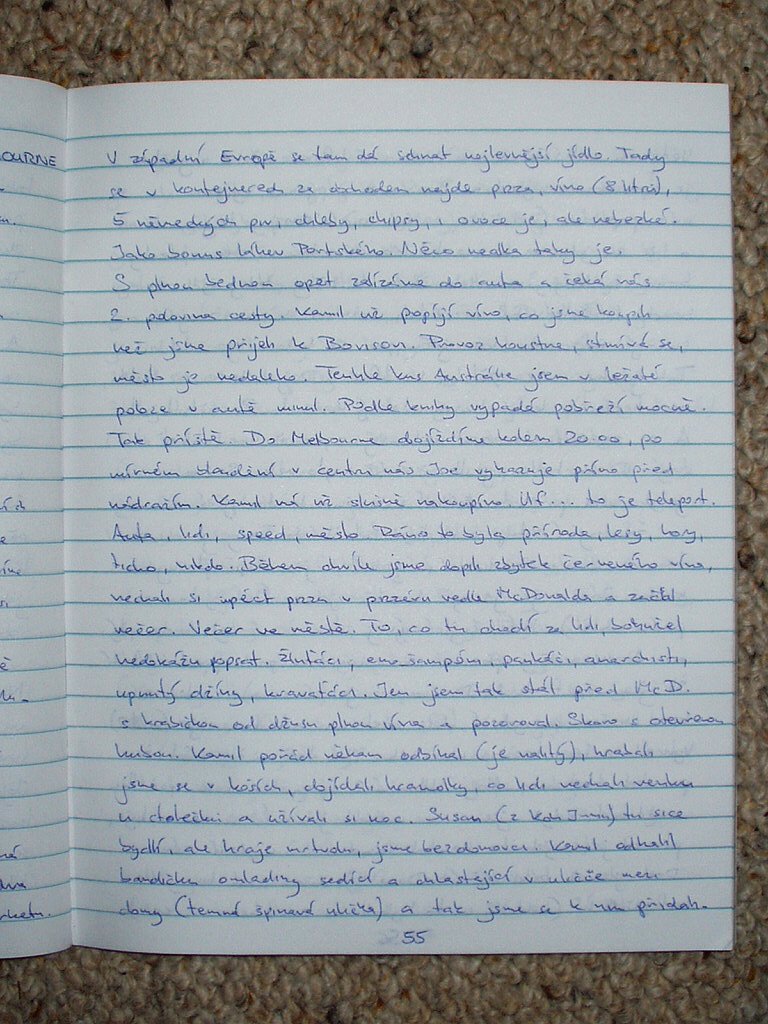 OURNE
V západní Evropě se tam dá sehnat nejlevnější jídlo. Tady
se v kontejnerech za obchodem najde pizza, víno (8 litrů),
5 německých piv, chleby, chipsy, i ovoce je, ale nebezké.
Jako bonus láhev Portského. Něco nealka taky je.
S plnou bednou opět zalízáme do auta a čeká nás
2. polovina cesty. Kamil už popíjí víno, co jsme koupili
než jsme přijeli k Bonison. Provoz houstne, stmívá se,
město je nedaleko. Tenhle kus Austrálie jsem v ležaté
poloze v autě minul. Podle knihy vypadá pobřeží mocně.
Tak příště. Do Melbourne dojíždíme kolem 20.00, po
mírném bloudění v centru nás Joe vyhazuje přímo před
nádražím. Kamil má už slušně nakoupíno. Uf... to je teleport.
Auta, lidi, speed, město. Ráno to byla příroda, lesy, hory,
ticho, nikdo. Během chvíle jsme dopili zbytek červeného vína,
nechali si upéct pizzu v pizzérii vedle McDonalda a začal
večer. Večer ve městě. To, co tu chodí za lidi, bohužel
nedokážu popsat. Žinťáci, emo šampóni, pankáči, anarchisti,
upnutý džíny, kravaťáci. Jen jsem tak stál před McD.
s krabičkou od džusu plnou vína a pozoroval. Skoro s otevřenou
hubou. Kamil pořád někam odbíhal (je nalitý), hrabali
jsme se v koších, dojídali hranolky, co lidi nechali venku
u stolečku a užívali si noc. Susan (z Koh Jumu) tu sice
bydlí, ale hraje mrtvou, jsme bezdomovci. Kamil odhalil
bandičku omladiny sedící a chlastající v uličce mezi
domy (temná špinavá ulička) a tak jsme se k nim přidali.
55